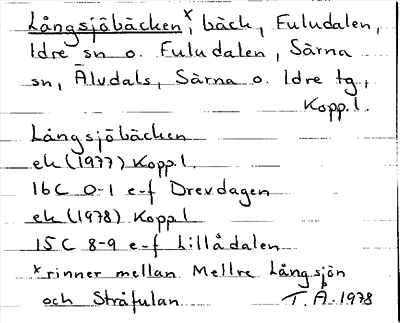 Långsjöbäcken x, bäck, Fuludalen,
Idre sn o. Fuludalen, Särna
sn, Älvdals, Särna o. Idre tg,
Kopp.l.
Långsjöbäcken
ek (1977) Kopp.l.
16C 0-1 e-f Drevdagen
ek (1978) Kopp.l
15C 8-9 e-f Lillådalen
x rinner mellan Mellre Långsjön
och Stråfulan T.Å. 1978